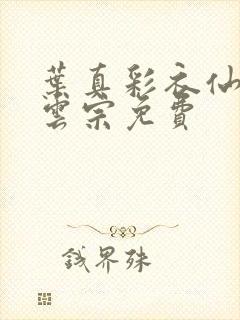 葉真彩衣仙
雲宗免費
鉞界殊